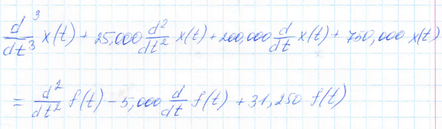 d³/dt³ x(t) + 25,000 d²/dt² x(t) + 200,000 d/dt x(t) + 750,000 x(t)
= d²/dt² f(t) - 5,000 d/dt f(t) + 31,250 f(t)